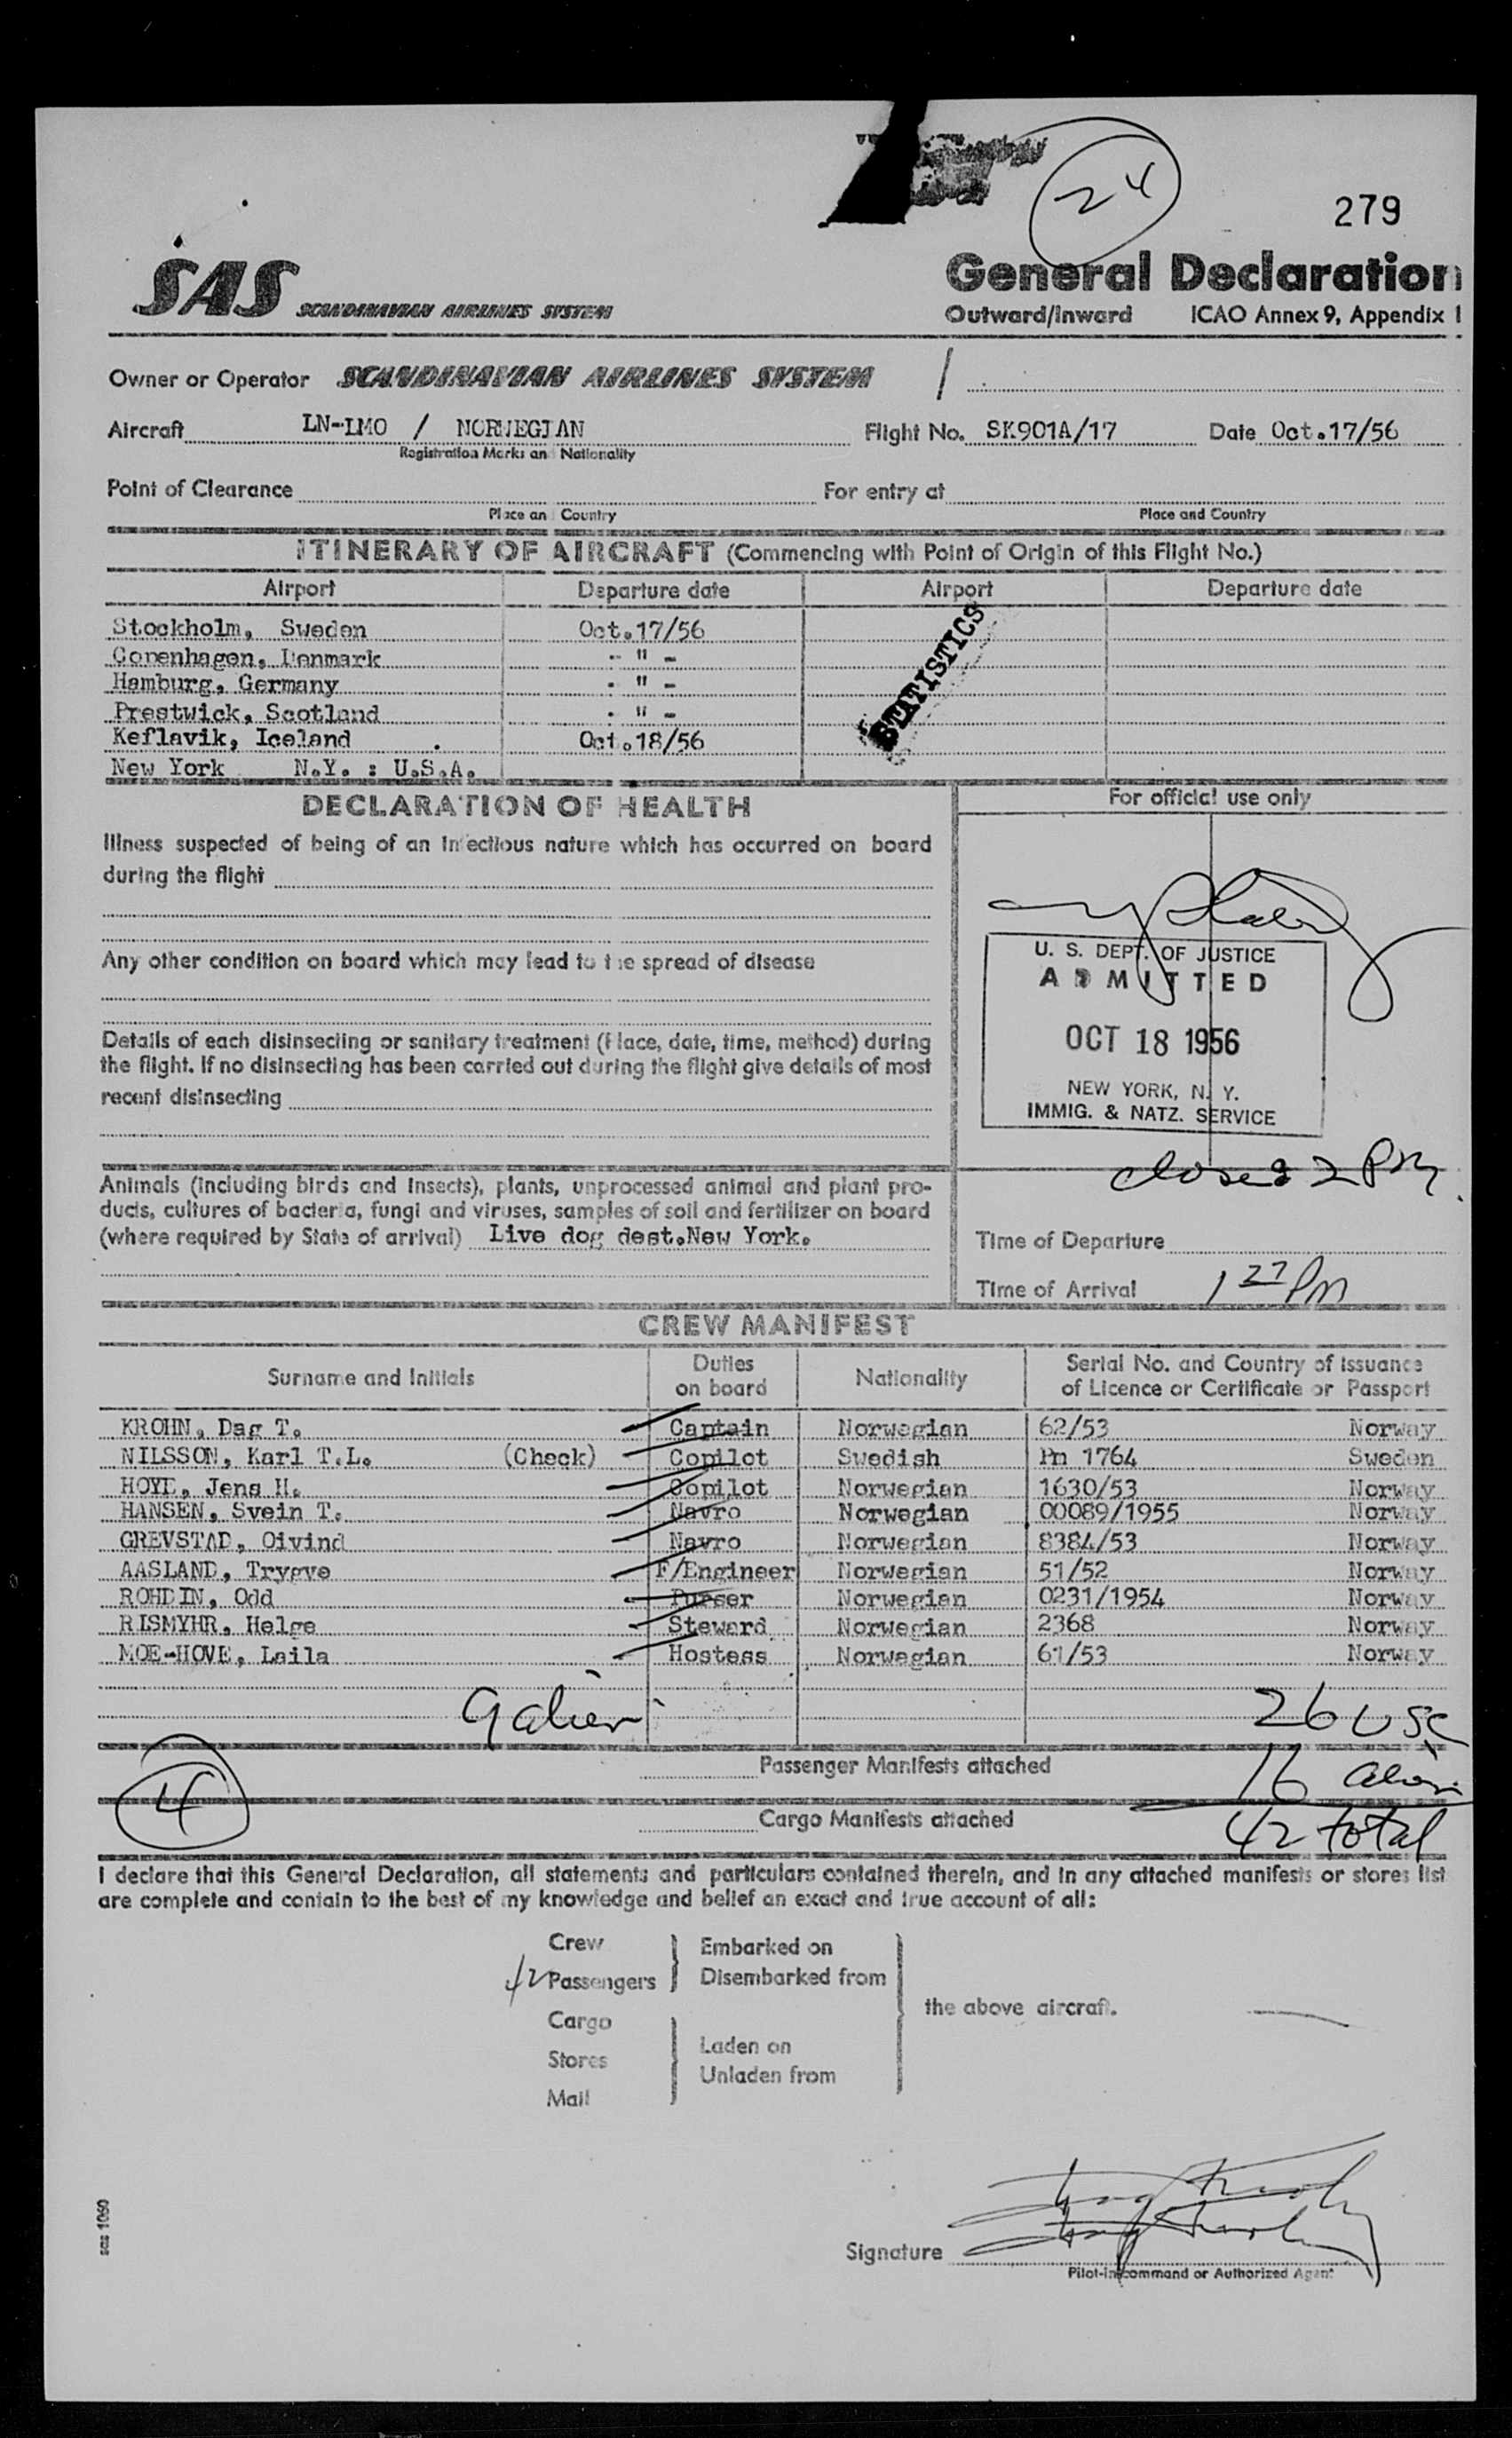 24
279
SAS SCANDINAVIAN AIRLINES SYSTEM
General Declaration
Outward/Inward ICAO Annex 9, Appendix 1
Owner or Operator SCANDINAVIAN AIRLINES SYSTEM /
Aircraft LN-LMO / NORWEGIAN Flight No. SK901A/17 Date Oct.17/56
Registration Marks and Nationality
Point of Clearance For entry at
Place and Country Place and Country
ITINERARY OF AIRCRAFT (Commencing with Point of Origin of this Flight No.)
Airport Departure date Airport Departure date
Stockholm, Sweden Oct.17/56
Copenhagen, Denmark - " -
Hamburg, Germany - " -
Prestwick, Scotland - " -
Keflavik, Iceland Oct.18/56
New York N.Y. : U.S.A.
STATISTICS
DECLARATION OF HEALTH
Illness suspected of being of an infectious nature which has occurred on board
during the flight
Any other condition on board which may lead to the spread of disease
Details of each disinsecting or sanitary treatment (Place, date, time, method) during
the flight. If no disinsecting has been carried out during the flight give details of most
recent disinsecting
Animals (including birds and insects), plants, unprocessed animal and plant pro-
ducts, cultures of bacteria, fungi and viruses, samples of soil and fertilizer on board
(where required by State of arrival) Live dog dest.New York.
For official use only
U. S. DEPT. OF JUSTICE
ADMITTED
OCT 18 1956
NEW YORK, N. Y.
IMMIG. & NATZ. SERVICE
closed 2 PM
Time of Departure
Time of Arrival 1 27 PM
CREW MANIFEST
Surname and Initials Duties on board Nationality Serial No. and Country of Issuance of Licence or Certificate or Passport
KROHN, Dag T. Captain Norwegian 62/53 Norway
NILSSON, Karl T.L. (Check) Copilot Swedish Pn 1764 Sweden
HOYE, Jens H. Copilot Norwegian 1630/53 Norway
HANSEN, Svein T. Navro Norwegian 00089/1955 Norway
GREVSTAD, Oivind Navro Norwegian 8384/53 Norway
AASLAND, Trygve F/Engineer Norwegian 51/52 Norway
ROHDIN, Odd Purser Norwegian 0231/1954 Norway
RISMYHR, Helge Steward Norwegian 2368 Norway
MOE-HOVE, Laila Hostess Norwegian 61/53 Norway
9 alien
26 USC
Passenger Manifests attached 16 alien
4
Cargo Manifests attached 42 total
I declare that this General Declaration, all statements and particulars contained therein, and in any attached manifests or stores list
are complete and contain to the best of my knowledge and belief an exact and true account of all:
Crew Embarked on
42 Passengers Disembarked from
the above aircraft.
Cargo
Stores Laden on
Unladen from
Mail
sas 1060
Signature
Pilot-in-command or Authorized Agent